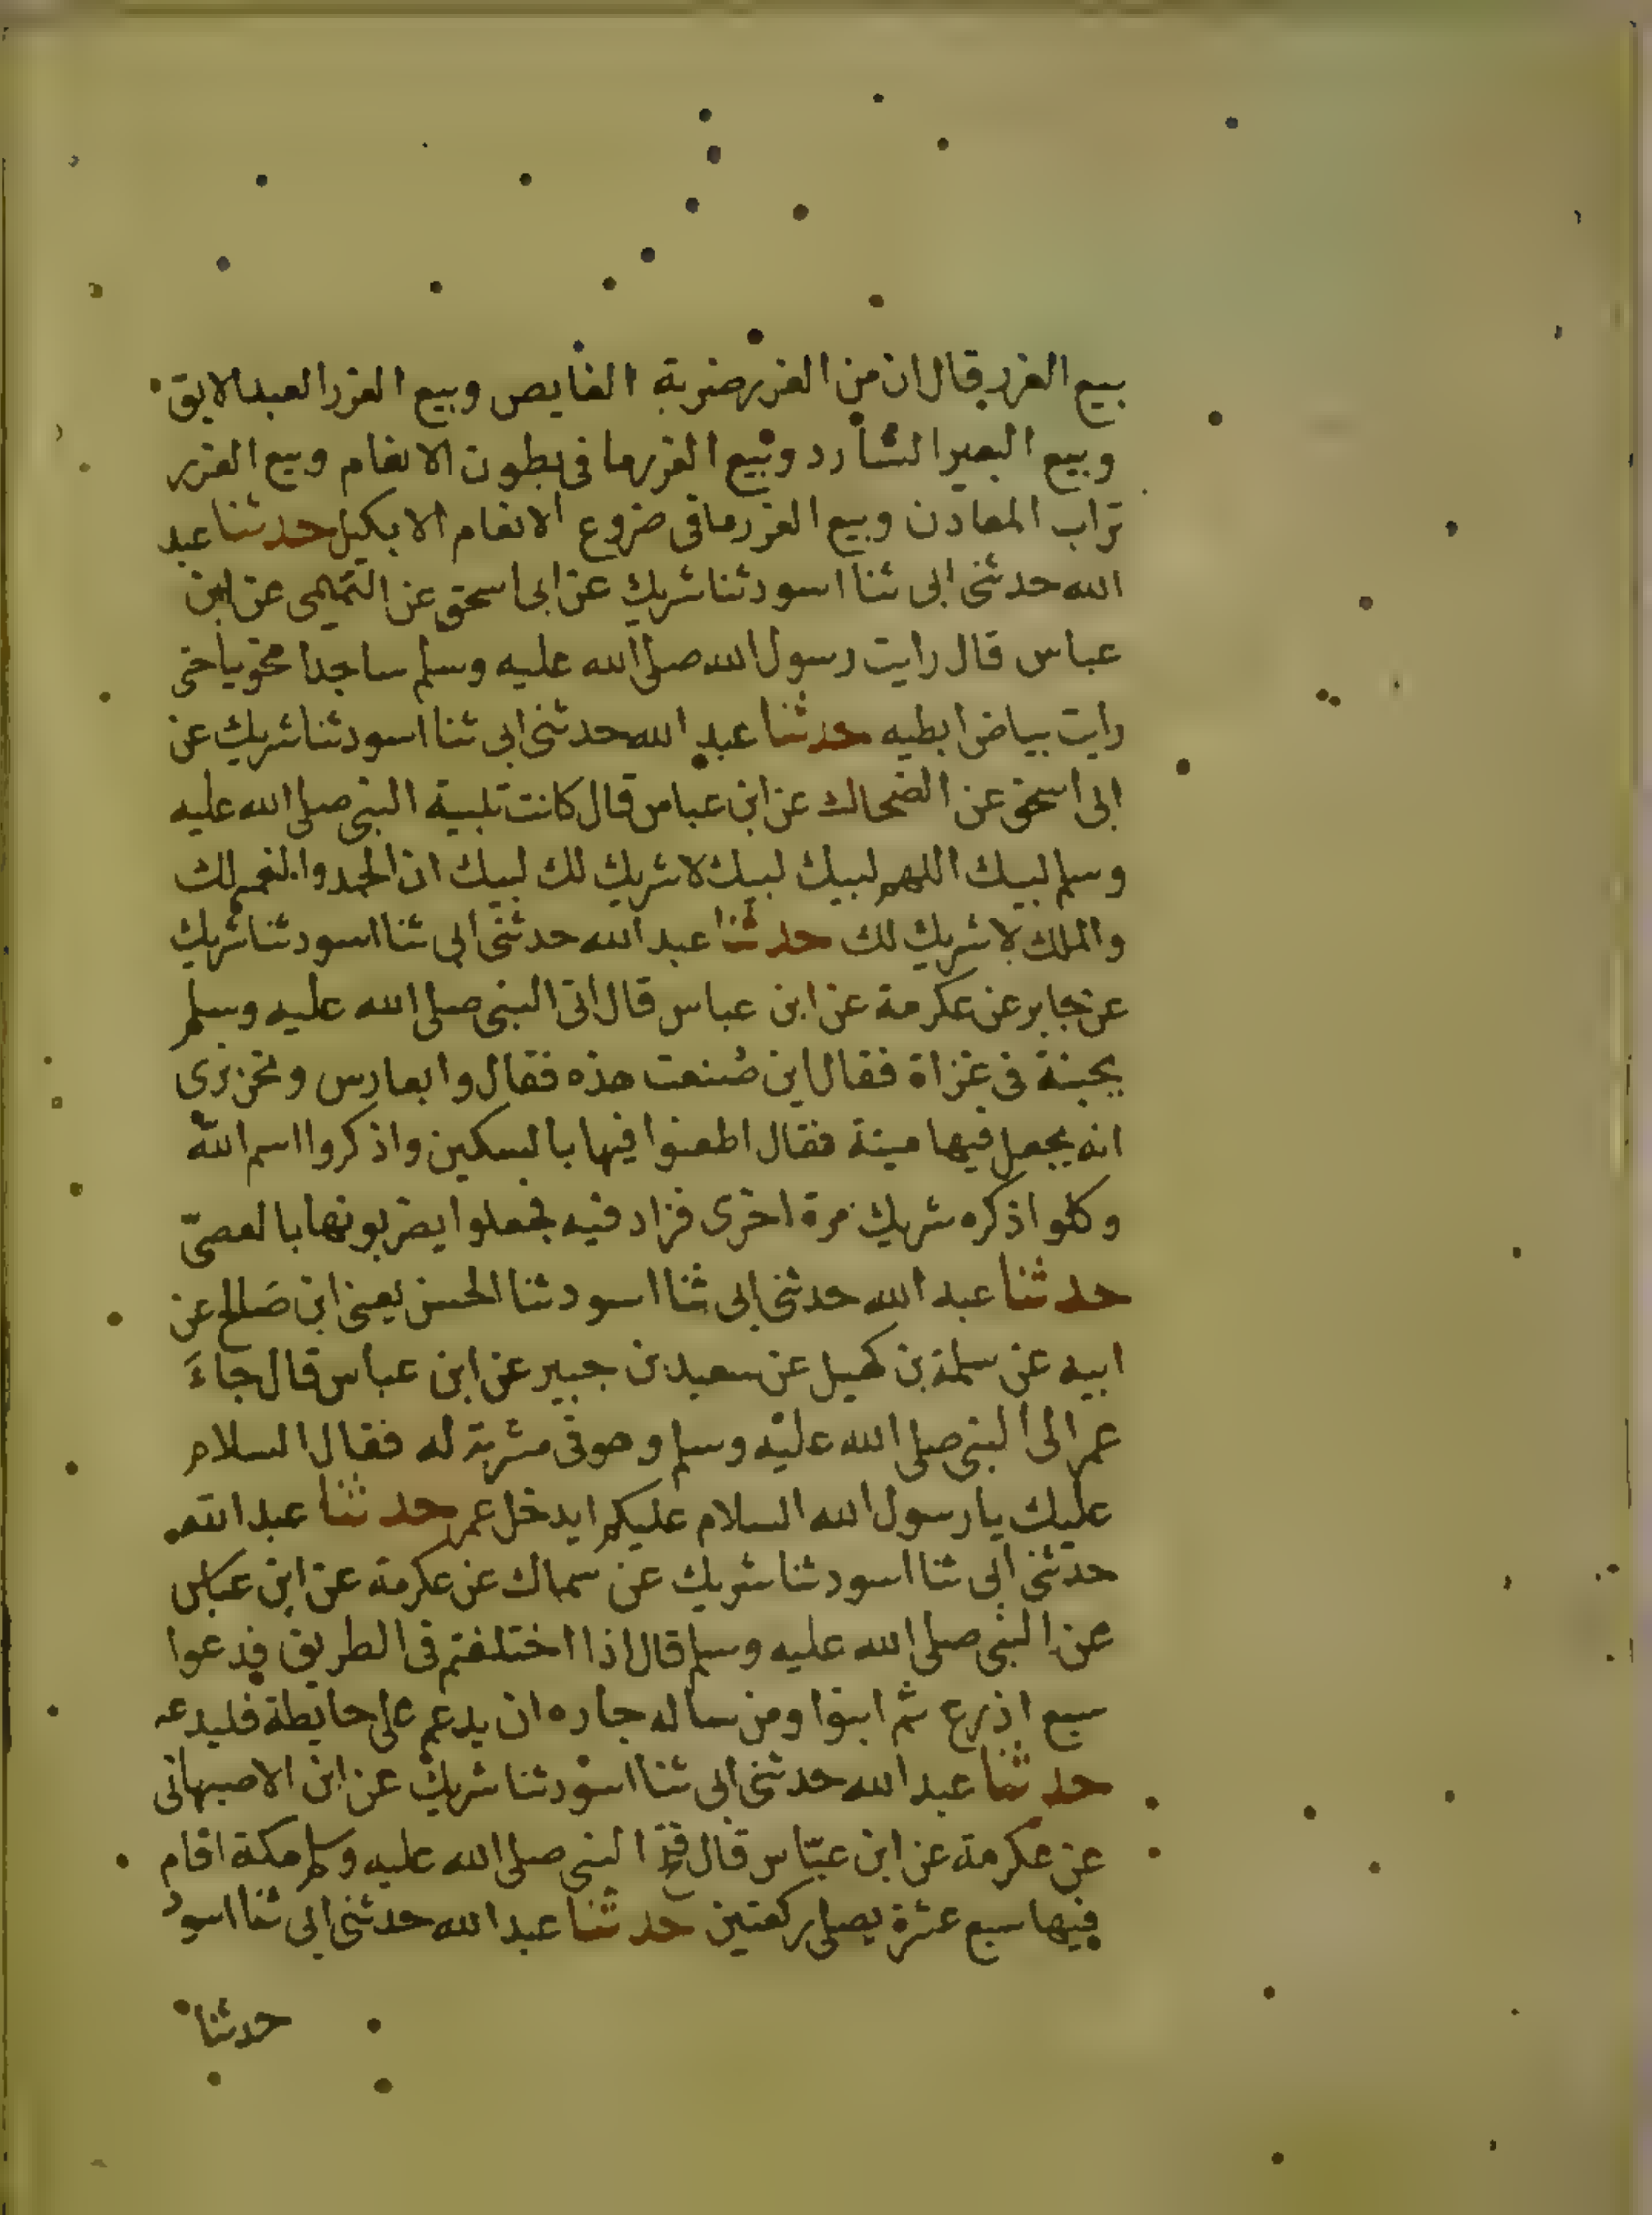 بيع الغرر قال ان من الغرر ضربة الغايص وبيع الغرر العبد الابق
وبيع البعير الشارد وبيع الغرر ما فى بطون الانعام وبيع الغرر
تراب المعادن وبيع الغرر ما فى ضروع الانعام الا بكيل حدثنا عبد
الله حدثنى ابى ثنا اسود ثنا شريك عن ابى اسحق عن التميمى عن ابن
عباس قال رايت رسول الله صلى الله عليه وسلم ساجدا مخويا حتى
رايت بياض ابطيه حدثنا عبد الله حدثنى ابى ثنا اسود ثنا شريك عن
ابى اسحق عن الضحاك عن ابن عباس قال كانت تلبية النبى صلى الله عليه
وسلم لبيك اللهم لبيك لبيك لا شريك لك لبيك ان الحمد والنعمه لك
والملك لا شريك لك حدثنا عبد الله حدثنى ابى ثنا اسود ثنا شريك
عن جابر عن عكرمة عن ابن عباس قال اتى النبى صلى الله عليه وسلم
بجبنة فى غزاة فقال اين صُنعت هذه فقالوا بفارس ونحن نرى
انه يجعل فيها ميتة فقال اطعنوا فيها بالسكين واذكروا اسم الله
وكلوا ذكره شريك مرة اخرى فزاد فيه فجعلوا يضربونها بالعصىّ
حدثنا عبد الله حدثنى ابى ثنا اسود ثنا الحسن يعنى ابن صَالح عن
ابيه عن سلمة بن كهيل عن سعيد بن جبير عن ابن عباس قال جاءَ
عمر الى النبى صلى الله عليه وسلم وهو فى مشربة له فقال السلام
عليك يا رسول الله السلام عليكم ايدخل عمر حدثنا عبد الله
حدثنى ابى ثنا اسود ثنا شريك عن سماك عن عكرمة عن ابن عباس
عن النبى صلى الله عليه وسلم قال اذا اختلفتم فى الطريق فدعوا
سبع اذرع ثم ابنوا ومن ساله جاره ان يدعم على حايطه فليدعه
حدثنا عبد الله حدثنى ابى ثنا اسود ثنا شريك عن ابن الاصبهانى
عن عكرمة عن ابن عبّاس قال فتح النبى صلى الله عليه وسلم مكة اقام
فيها سبع عشرة يصلى ركعتين حدثنا عبد الله حدثنى ابى ثنا اسود
حدثنا